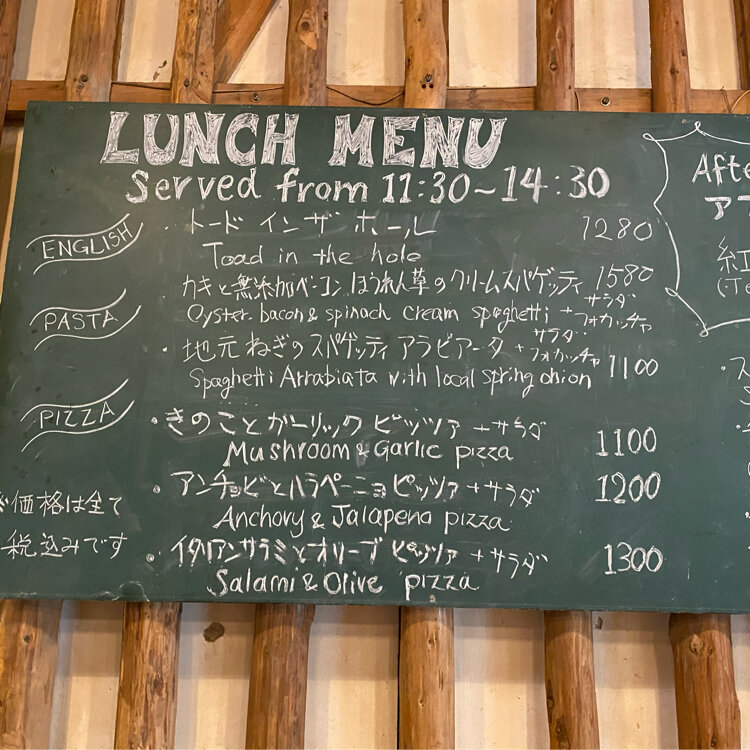 LUNCH MENU
Served from 11:30~14:30
ENGLISH
・トード イン ザ ホール 1280
Toad in the hole
PASTA
カキと無添加ベーコン ほうれん草のクリームスパゲッティ 1580
+サラダ
フォカッチャ
Oyster. bacon & spinach cream spaghetti
・地元ねぎのスパゲッティ アラビアータ 1100
+サラダ
フォカッチャ
Spaghetti Arrabiata with local spring onion
PIZZA
・きのことガーリック ピッツァ +サラダ 1100
Mushroom & Garlic pizza
・アンチョビとハラペーニョ ピッツァ +サラダ 1200
Anchovy & Jalapeno pizza
・イタリアンサラミとオリーブ ピッツァ +サラダ 1300
Salami & Olive pizza
※価格は全て
税込みです
Afte
ア
紅
(Te
・ス
S